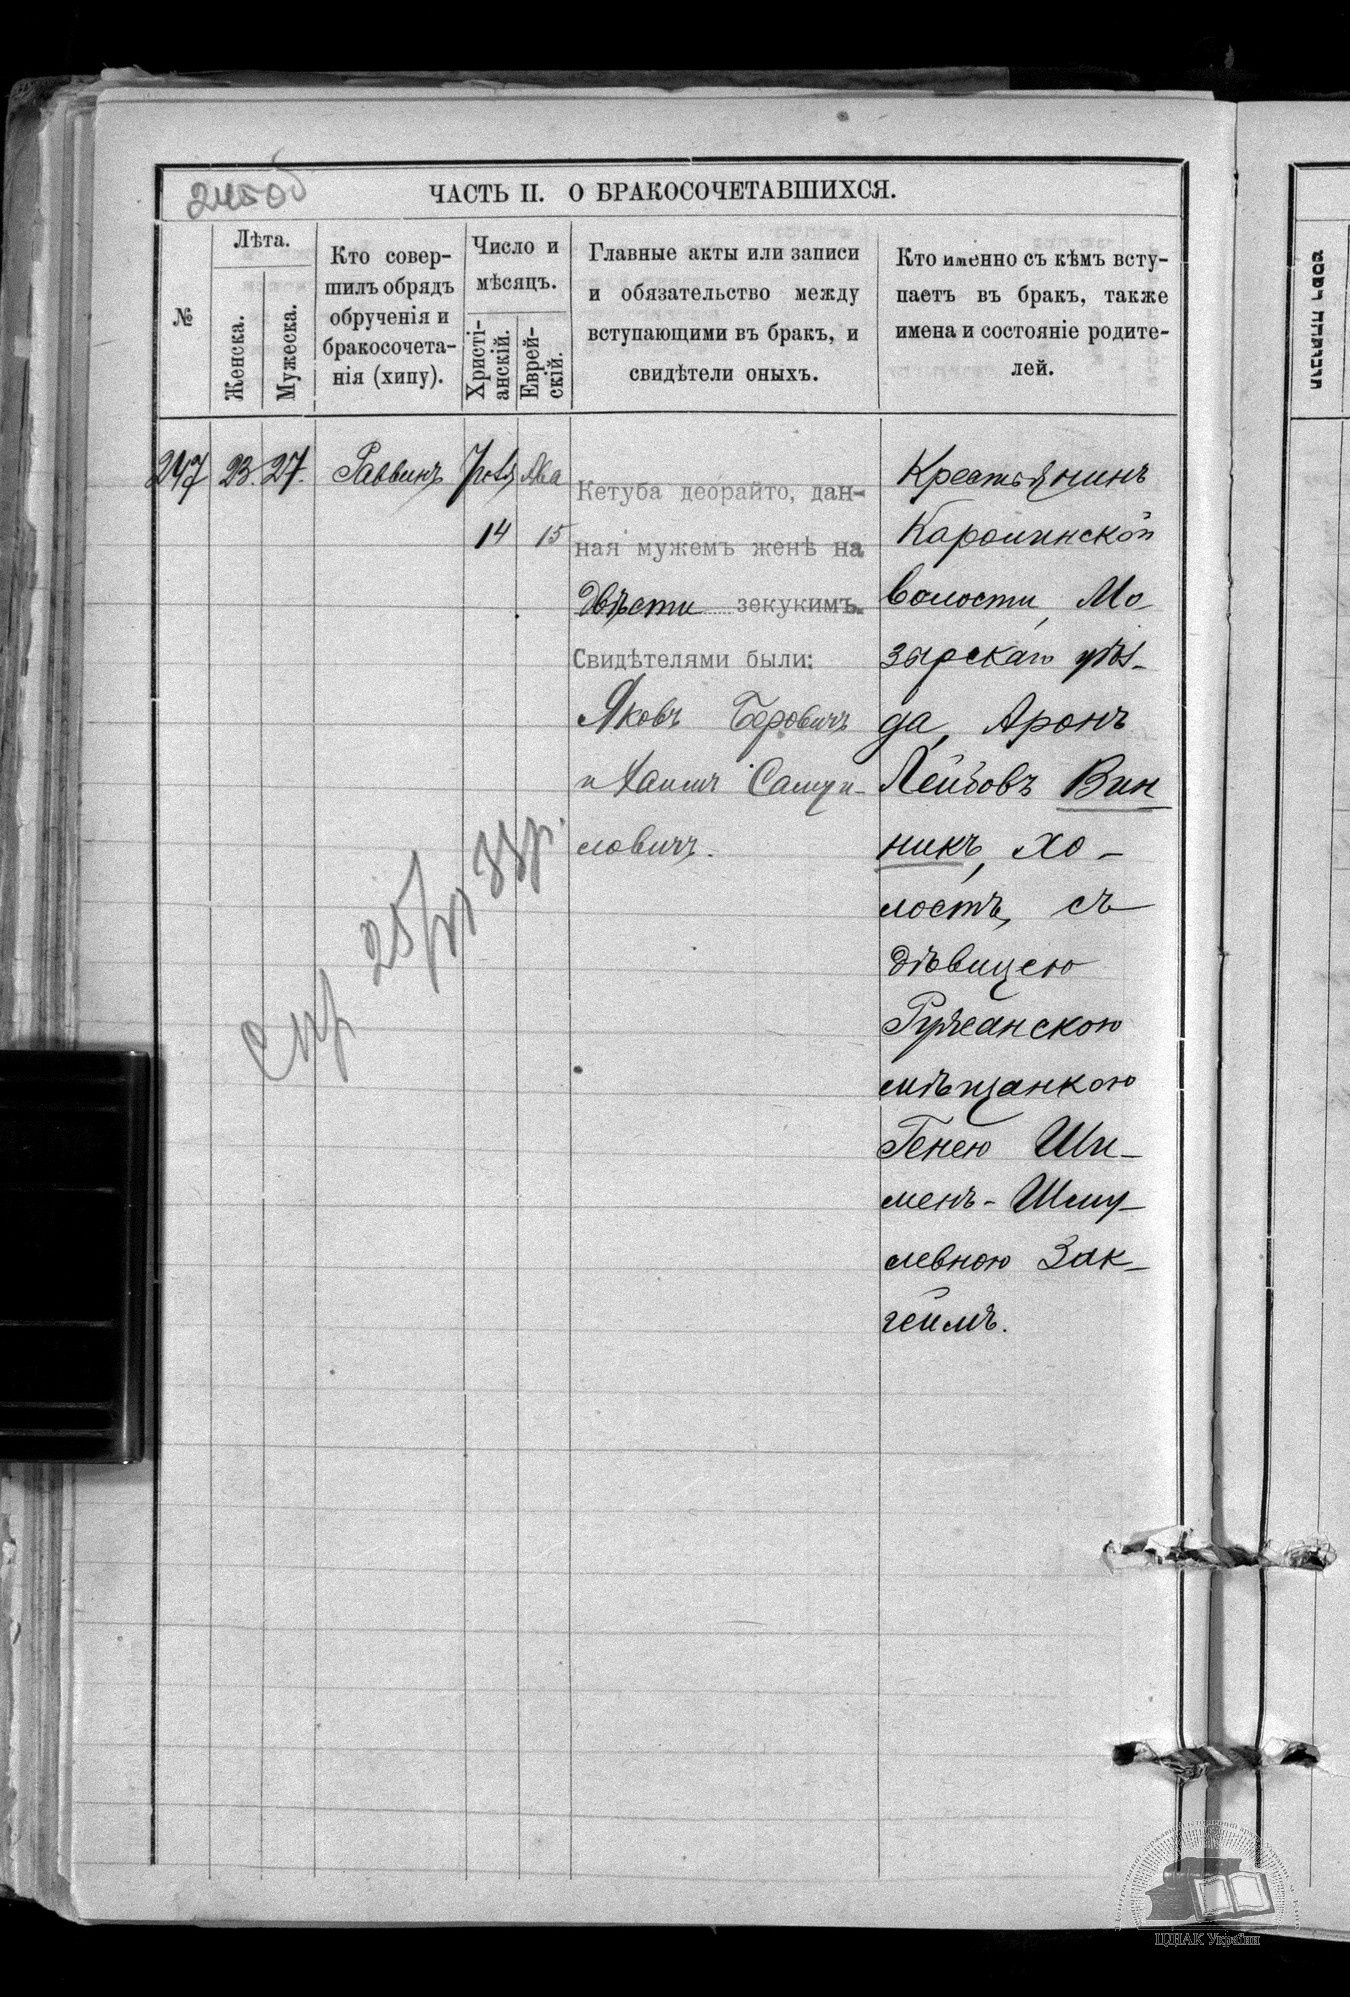 245об
ЧАСТЬ II. О БРАКОСОЧЕТАВШИХСЯ.
№
Лѣта.
Женска.
Мужеска.
Кто совер-
шилъ обрядъ
обрученія и
бракосочета-
нія (хипу).
Число и
мѣсяцъ.
Христі-
анскій.
Еврей-
скій.
Главные акты или записи
и обязательство между
вступающими въ бракъ, и
свидѣтели оныхъ.
Кто именно съ кѣмъ всту-
паетъ въ бракъ, также
имена и состояніе родите-
лей.
247
23.
27.
Раввинъ
14
Ава
15
Кетуба деорайто, дан-
ная мужемъ женѣ на
двѣсти зекукимъ.
Свидѣтелями были:
Яковъ Беровичъ
и Хаимъ Самуи-
ловичъ.
Крестьянинъ
Каролинской
волости, Мо
зырскаго уѣз-
да, Аронъ
Лейбовъ Вин
никъ, хо-
лостъ, съ
дѣвицею
Ружанскою
мѣщанкою
Генею Ши-
менъ-Шму-
левною Зак-
геимъ.
ЦДІАК України